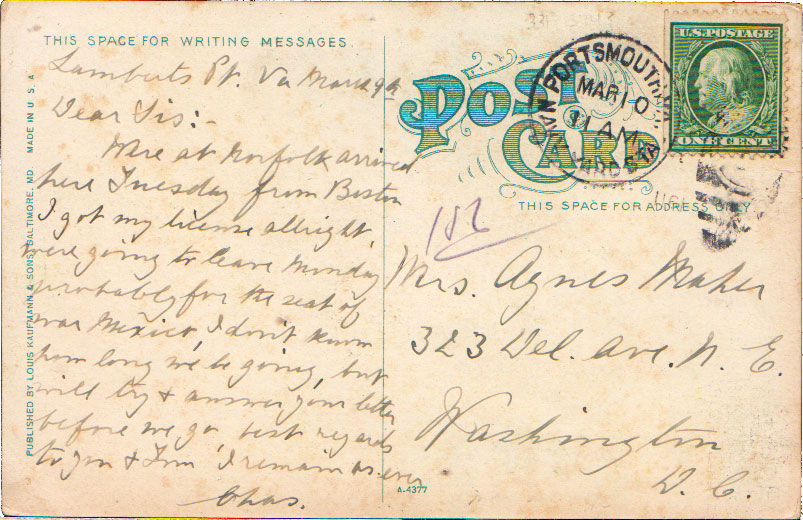 THIS SPACE FOR WRITING MESSAGES
Lamberts Pt. Va March 9th
Dear Sis:-
Were at Norfolk arrived
here Tuesday from Boston
I got my license allright,
were going to leave Monday
probably for the seat of
war Mexico, I don't know
how long we'll be going, but
will try & answer your letter
before we go best regards
to you & Tom I remain as ever
Chas.
PUBLISHED BY LOUIS KAUFMANN & SONS, BALTIMORE, MD. MADE IN U.S.A.
POST
CARD
THIS SPACE FOR ADDRESS ONLY
PORTSMOUTH
MAR 10
11 AM
VA.
U.S. POSTAGE
ONE CENT
Mrs. Agnes Maher
323 Del. Ave. N. E.
Washington
D. C.
A-4377